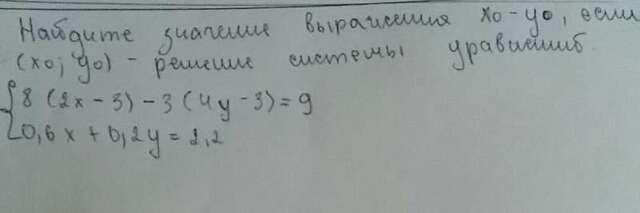 Найдите значение выражения x₀-y₀, если
(x₀; y₀) - решение системы уравнений.
{8 (2x - 3) - 3 (4y - 3) = 9
0,6x + 0,2y = 2,2